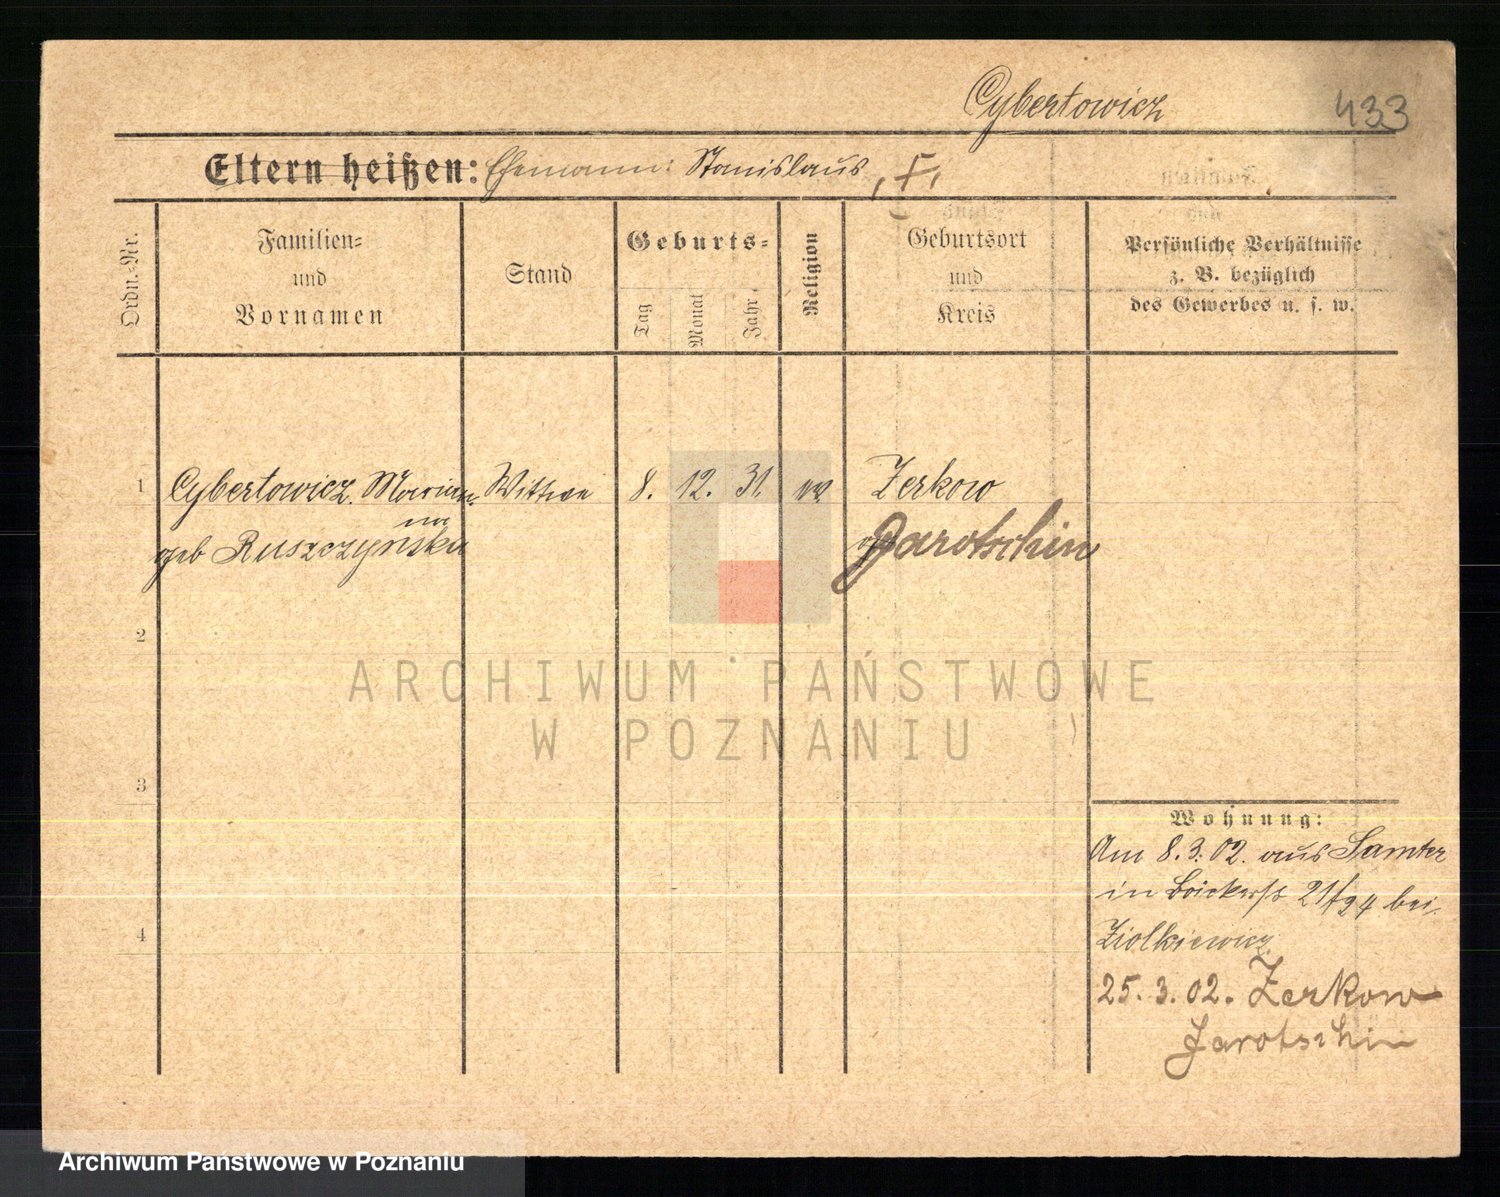 Cybertowicz
433
Eltern heißen: Ehemann: Stanislaus, †,
Ordn.=Nr.
Familien=
und
Vornamen
Stand
Geburts=
Tag
Monat
Jahr
Religion
Geburtsort
und
Kreis
Persönliche Verhältnisse
z. B. bezüglich
des Gewerbes u. s. w.
1
Cybertowicz Marian
na
geb Ruszczyńska
Wittwe
8. 12. 31.
Zerkow
Jarotschin
2
3
4
Wohnung:
Am 8.3.02. aus Samter
in 21/24 bei
Ziolkiewicz
25.3.02. Zerkow
Jarotschin
ARCHIWUM PAŃSTWOWE
W POZNANIU
Archiwum Państwowe w Poznaniu